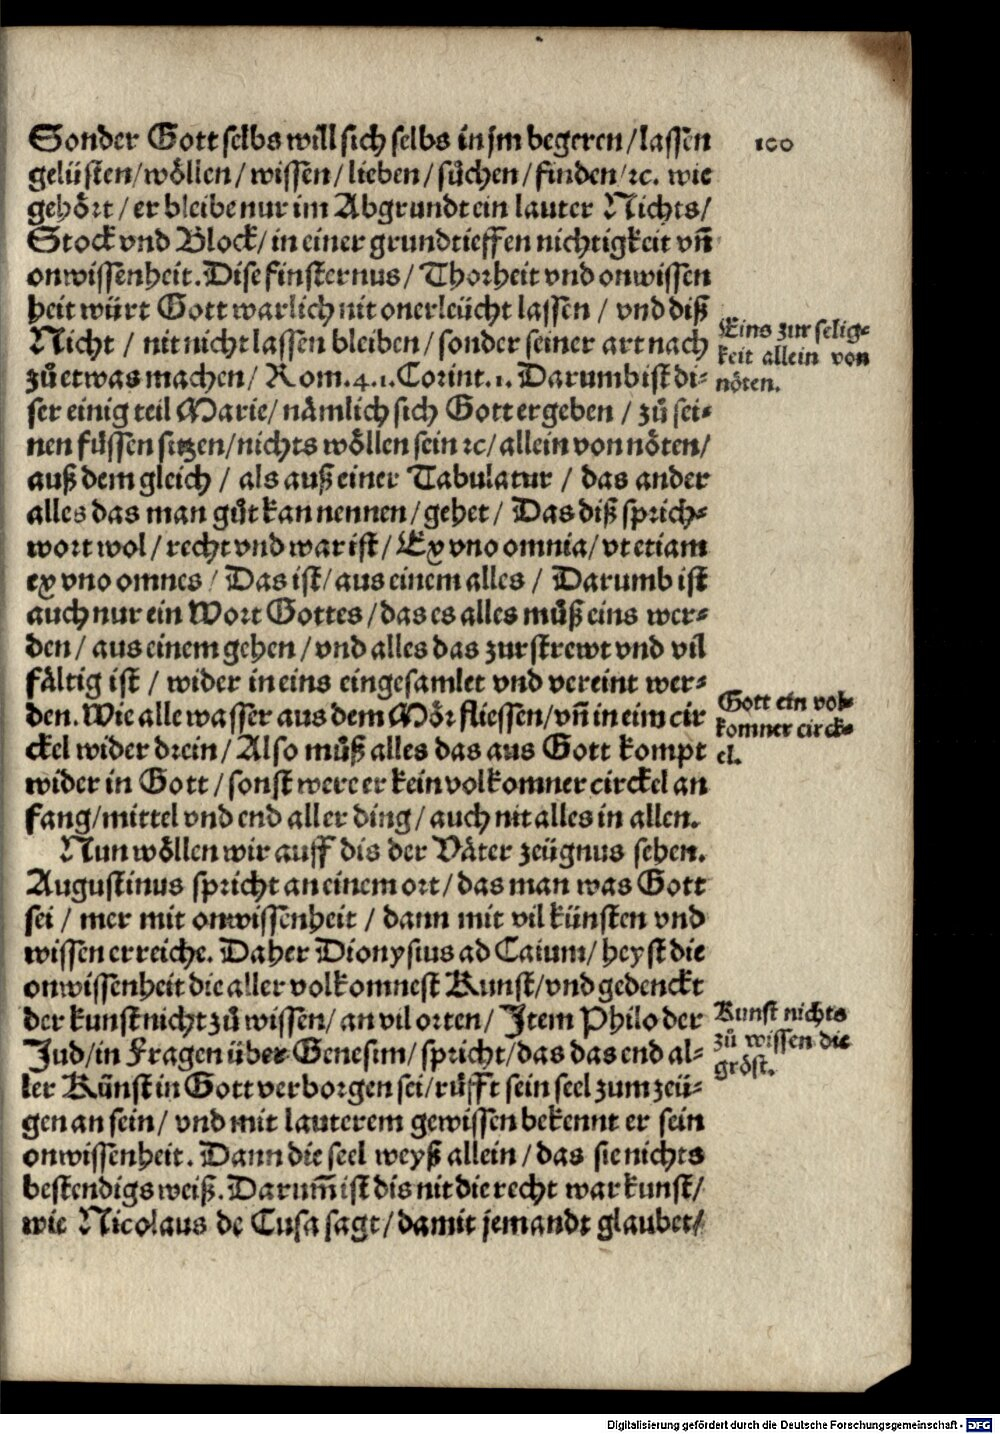 100
Sonder Gott selbs will sich selbs in jm begeren / lassen
gelüsten / wöllen / wissen / lieben / sůchen / finden / ꝛc. wie
gehört / er bleibe nur im Abgrundt ein lauter Nichts /
Stock vnd Block / in einer grundtieffen nichtigkeit vñ
onwissenheit. Dise finsternus / Thorheit vnd onwissen
heit würt Gott warlich nit onerleücht lassen / vnd diß
Nicht / nit nicht lassen bleiben / sonder seiner art nach
zů etwas machen / Rom. 4. 1. Corint. 1. Darumb ist di⸗
ser einig teil Marie / nämlich sich Gott ergeben / zů sei⸗
nen füssen sitzen / nichts wöllen sein ꝛc / allein von nöten /
auß dem gleich / als auß einer Tabulatur / das ander
alles das man gůt kan nennen / gehet / Das diß sprich⸗
wort wol / recht vnd war ist / Ex vno omnia / vt etiam
ex vno omnes / Das ist / aus einem alles / Darumb ist
auch nur ein Wort Gottes / das es alles můß eins wer⸗
den / aus einem gehen / vnd alles das zurstrewt vnd vil
fältig ist / wider in eins eingesamlet vnd vereint wer⸗
den. Wie alle wasser aus dem Mör fliessen / vñ in eim cir
ckel wider drein / Also můß alles das aus Gott kompt
wider in Gott / sonst were er kein volkomner circkel an
fang / mittel vnd end aller ding / auch nit alles in allen.
Nun wöllen wir auff dis der Väter zeügnus sehen.
Augustinus spricht an einem ort / das man was Gott
sei / mer mit onwissenheit / dann mit vil künsten vnd
wissen erreiche. Daher Dionysius ad Caium / heyst die
onwissenheit die aller volkomnest Kunst / vnd gedenckt
der kunst nicht zů wissen / an vil orten / Item Philo der
Jud / in Fragen über Genesim / spricht / das das end al⸗
ler Künst in Gott verborgen sei / růfft sein seel zum zeü⸗
gen an sein / vnd mit lauterem gewissen bekennt er sein
onwissenheit. Dann die seel weyß allein / das sie nichts
bestendigs weiß. Darum̃ ist dis nit die recht war kunst /
wie Nicolaus de Cusa sagt / damit jemandt glaubet /
Eins zur selig⸗
keit allein von
nöten.
Gott ein vol⸗
komner circk⸗
el.
Kunst nichts
zů wissen die
gröst.
Digitalisierung gefördert durch die Deutsche Forschungsgemeinschaft - DFG